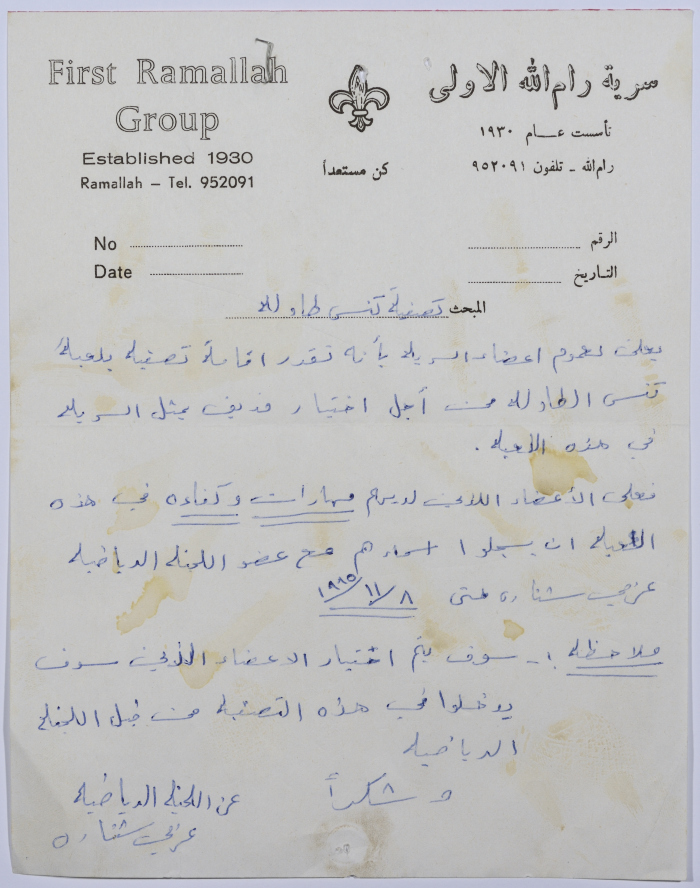 First Ramallah
Group
Established 1930
Ramallah – Tel. 952091
كن مستعداً
سرية رام الله الاولى
تأسست عــام ١٩٣٠
رام الله - تلفون ٩٥٢٠٩١
No
Date
الرقم
التاريخ
المبحث تصفية تنس طاولة
يعلن لعموم اعضاء السرية بأنه تقرر اقامة تصفية بلعبة
تنس الطاولة من أجل اختيار فريق يمثل السرية
في هذه اللعبة .
فعلى الأعضاء اللذين لديهم مهارات وكفاءه في هذه
اللعبة ان يسجلوا اسماءهم مع عضو اللجنة الرياضية
عزمي شناره حتى ٨/١١/١٩٨٥
ملاحظه :- سوف يتم اختيار الاعضاء اللذين سوف
يدخلوا في هذه التصفية من قبل اللجنة
الرياضية
وشكراً
عن اللجنة الرياضية
عزمي شناره